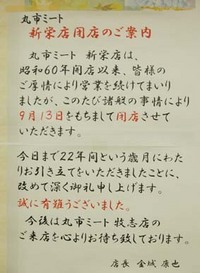 丸市ミート
新栄店閉店のご案内
丸市ミート 新栄店は、
昭和60年開店以来、皆様の
ご厚情により営業を続けてまいり
ましたが、このたび諸般の事情により
9月13日をもちまして閉店させて
いただきます。
今日まで22年間という歳月にわた
りお引き立てをいただきましたことに、
改めて深く御礼申し上げます。
誠に有難うございました。
今後は丸市ミート 牧志店の
ご来店を心よりお待ち致しております。
店長 金城 康也